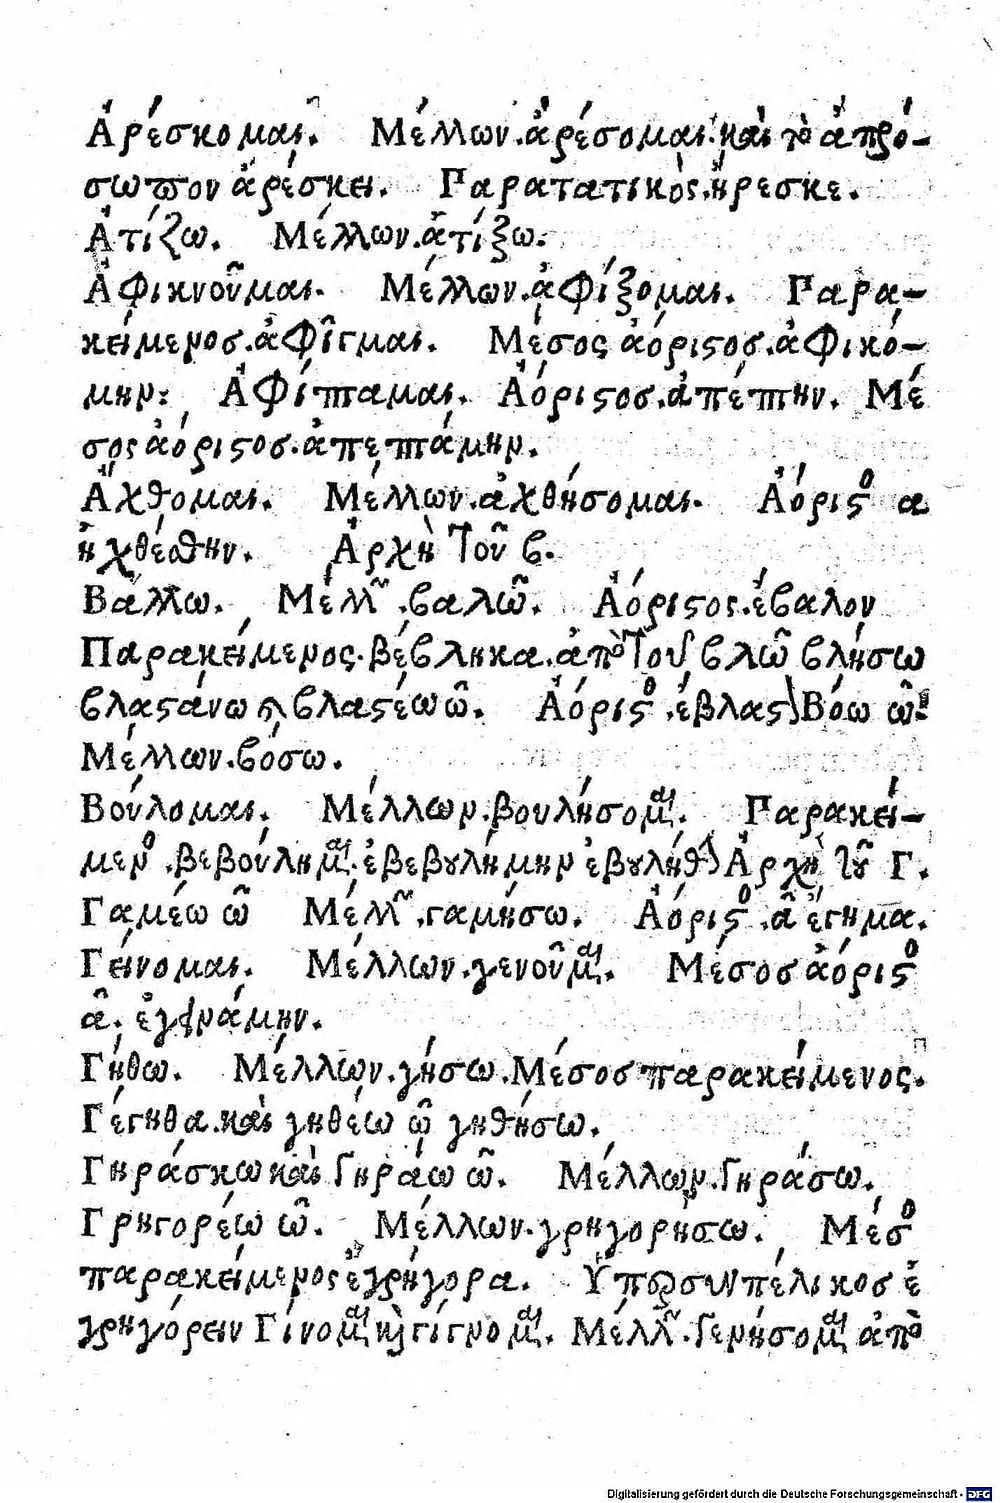 Ἀρέσκομαι. Μέλλων.ἀρέσομαι.καὶ τὸ ἀπρό-
σωπον ἀρέσκει. Παρατατικὸς.ἤρεσκε.
Ἀτίζω. Μέλλων.ἀτίξω.
Ἀφικνοῦμαι. Μέλλων.ἀφίξομαι. Παρα-
κείμενος.ἀφῖγμαι. Μέσος ἀόριστος.ἀφικό-
μην: Ἀφίπταμαι. Ἀόριστος.ἀπέπτην. Μέ
σος ἀόριστος.ἀπεπτάμην.
Ἄχθομαι. Μέλλων.ἀχθήσομαι. Ἀόριστος α
ἠχθέσθην. Ἀρχὴ τοῦ β.
Βάλλω. Μέλλων.βαλῶ. Ἀόριστος.ἔβαλον
Παρακείμενος.βέβληκα.ἀπὸ τοῦ βλῶ βλήσω
βλαστάνω βλαστέω ῶ. Ἀόριστος.ἔβλαστον Βόω ῶ.
Μέλλων.βόσω.
Βούλομαι. Μέλλων.βουλήσομαι. Παρακεί-
μενος.βεβούλημαι.ἐβεβουλήμην ἐβουλήθην Ἀρχὴ τοῦ Γ.
Γαμέω ῶ Μέλλων.γαμήσω. Ἀόριστος.ᾶ ἔγημα.
Γείνομαι. Μέλλων.γενοῦμαι. Μέσος ἀόριστος
ᾶ. ἐγεινάμην.
Γήθω. Μέλλων.γήσω.Μέσος παρακείμενος.
Γέγηθα.καὶ γηθέω ῶ γηθήσω.
Γηράσκω καὶ γηράω ῶ. Μέλλων.γηράσω.
Γρηγορέω ῶ. Μέλλων.γρηγορήσω. Μέσος
παρακείμενος ἐγρήγορα. Ὑπερσυντελικος ἐ
γρηγόρειν Γίνομαι καὶ γίγνομαι. Μέλλων.γενήσομαι ἀπὸ
Digitalisierung gefördert durch die Deutsche Forschungsgemeinschaft - DFG